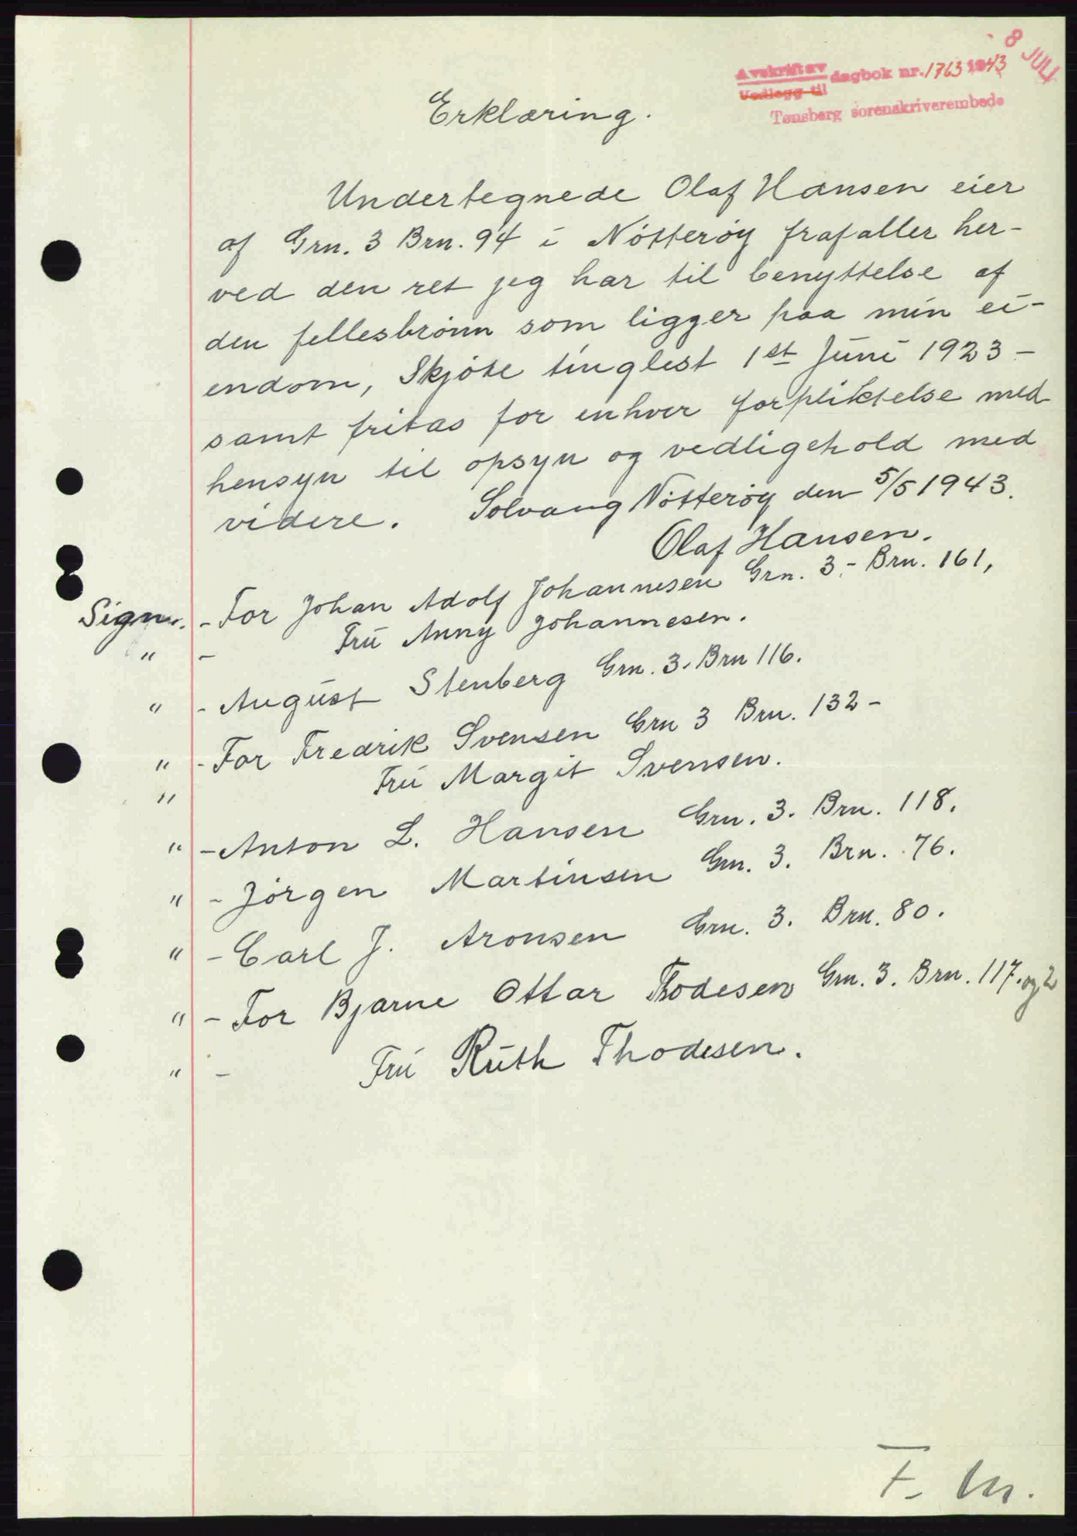 8 JULI
Avskrift av
Vedlegg til dagbok nr. 1763 1943
Tønsberg sorenskriverembede
Erklæring.
Undertegnede Olaf Hansen eier
af Grn. 3 Brn. 94 i Nötteröy frafaller her-
ved den ret jeg har til benyttelse af
den fellesbrönn som ligger paa min ei-
endom, Skjöte tinglest 1st Juni 1923 –
samt fritas for enhver forpliktelse med
hensyn til opsyn og vedligehold med
videre. Solvang Nötteröy den 5/5 1943.
Olaf Hansen.
Sign. - For Johan Adolf Johannesen Grn. 3.- Brn. 161,
" - Fru Anny Johannesen.
" - August Stenberg Grn. 3. Brn 116.
" - For Fredrik Svensen Grn 3 Brn. 132 -
" Fru Margit Svensen.
" - Anton L. Hansen Grn. 3. Brn. 118.
" - Jörgen Martinsen Grn. 3. Brn. 76.
" - Carl J. Aronsen Grn. 3. Brn. 80.
" - For Bjarne Ottar Thodesen Grn. 3. Brn. 117. og 2
" - Fru Ruth Thodesen.